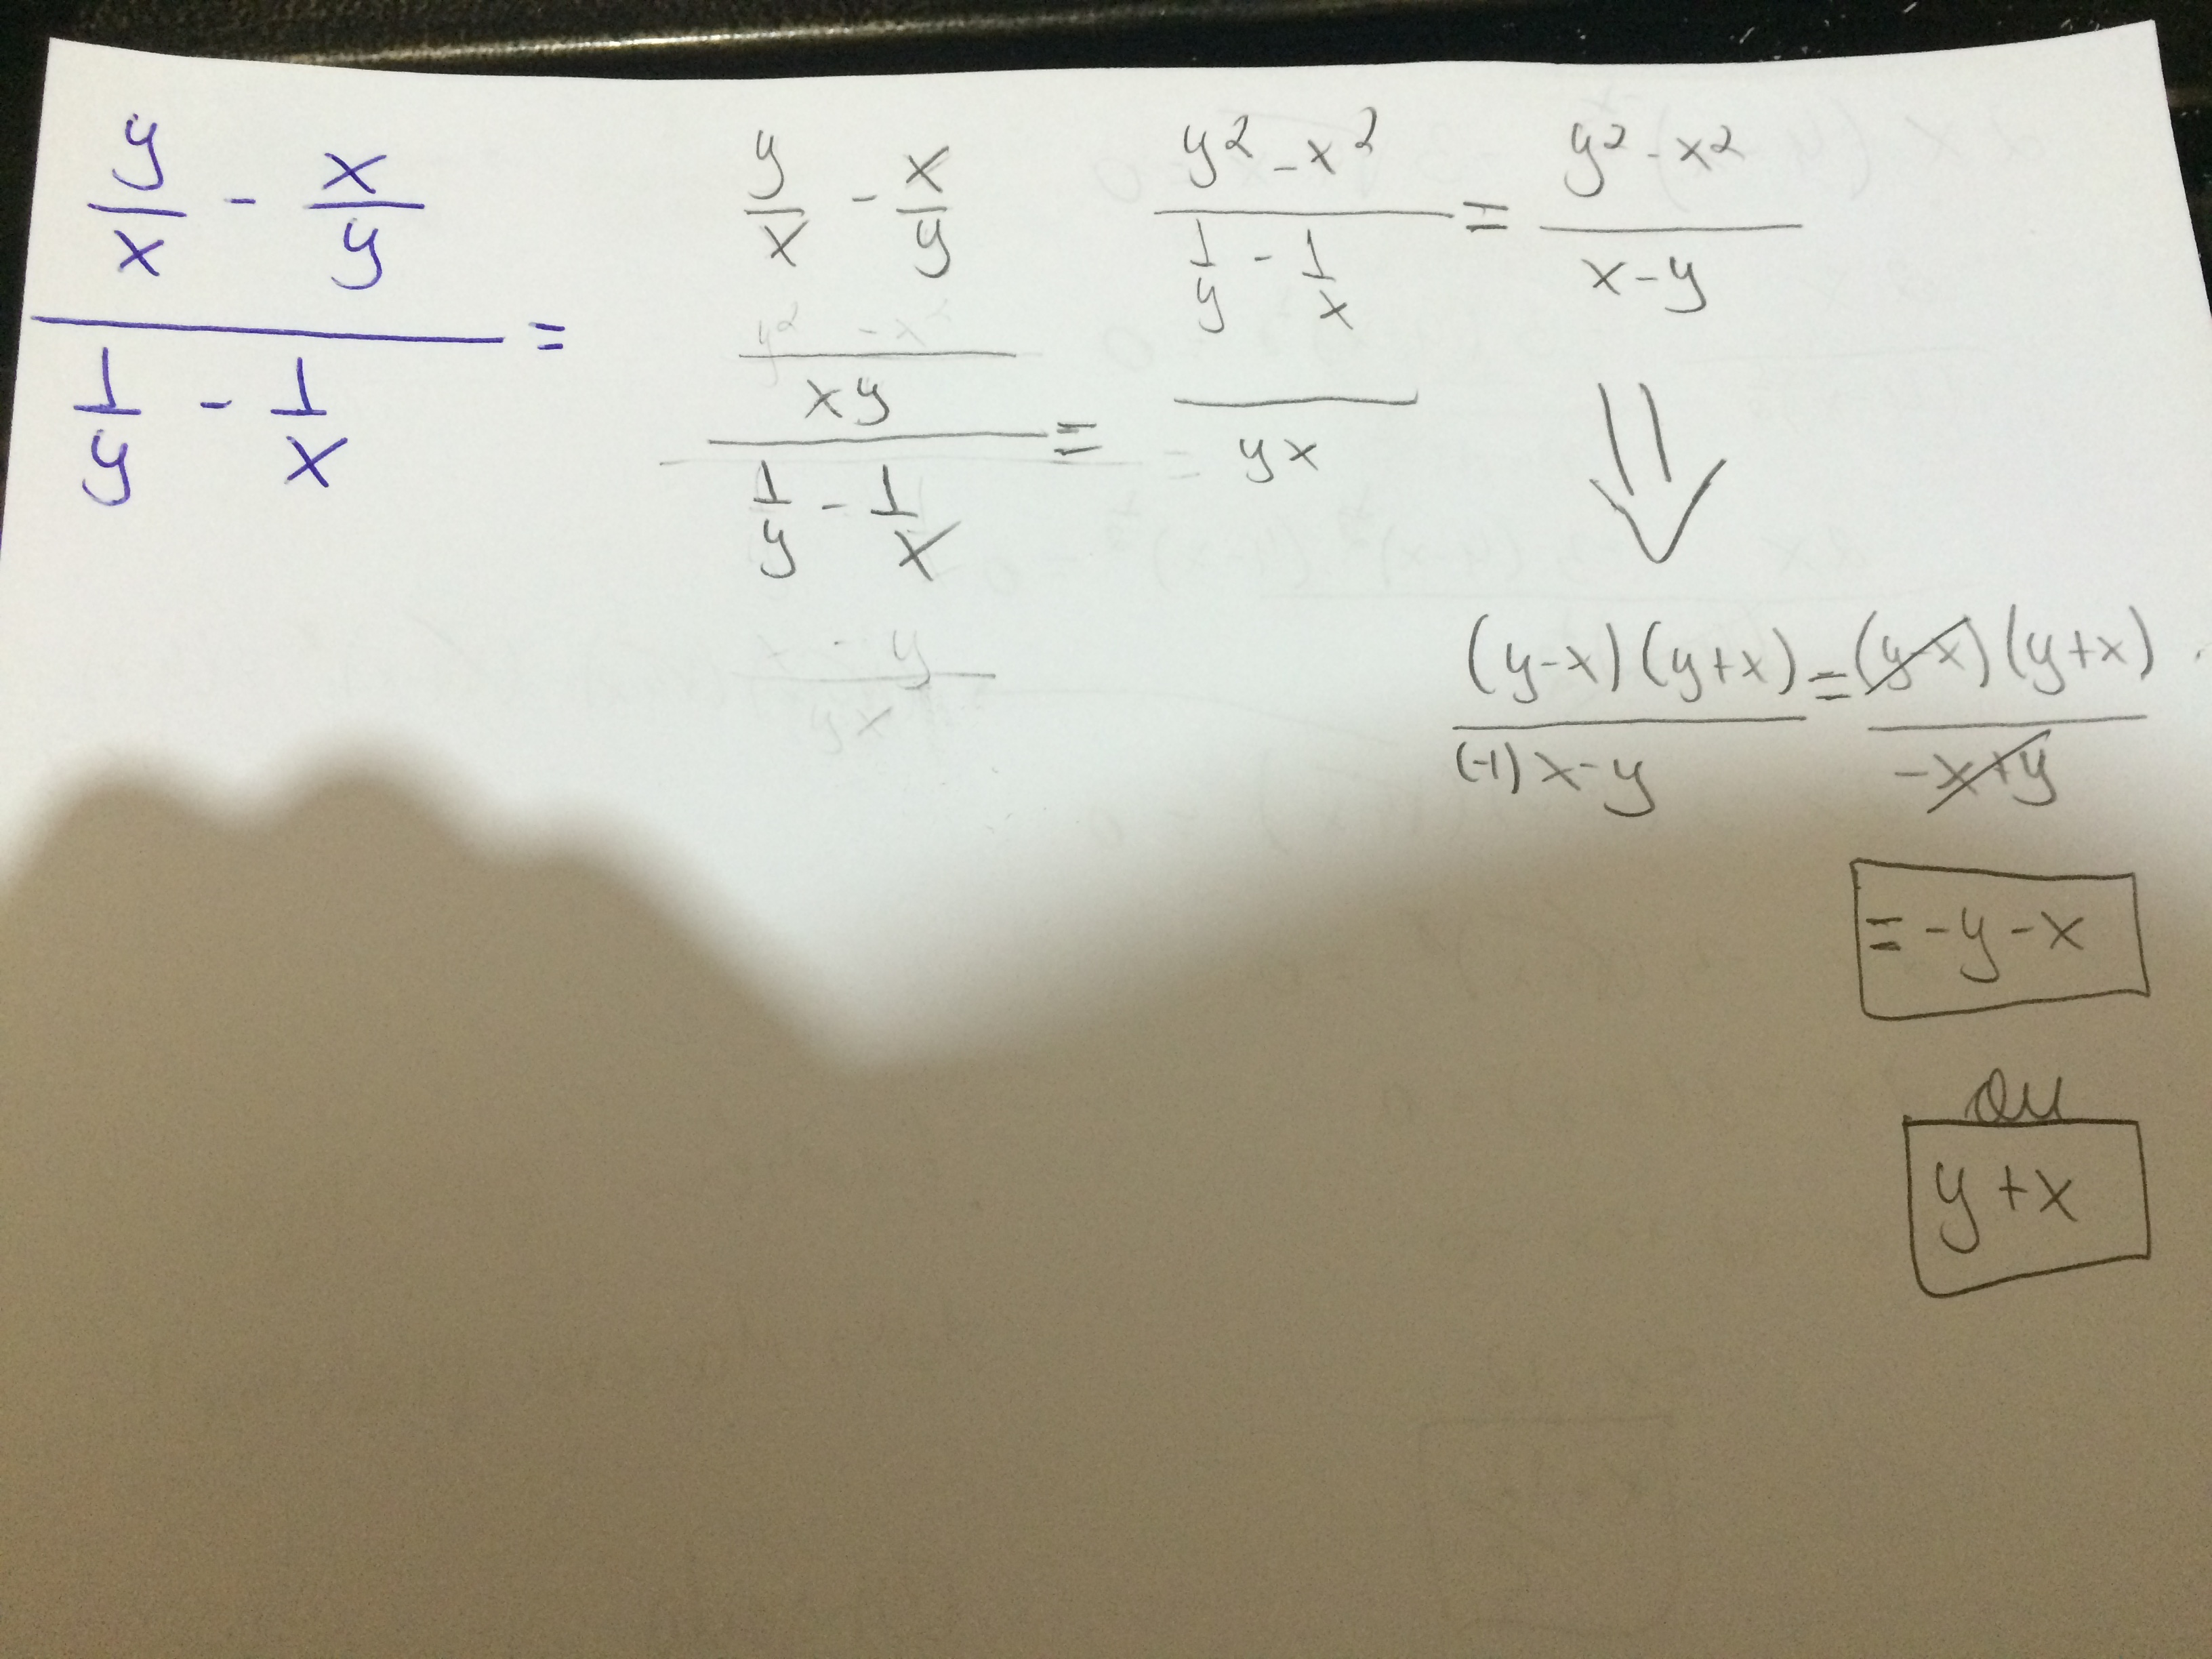 y/x - x/y
―――――― =
1/y - 1/x
y/x - x/y
y² - x²
――――
xy
―――――― =
1/y - 1/x
y² - x²
――――――
1/y - 1/x
――――
yx
= y² - x²
――――
x - y
⇓
(y-x)(y+x) = (y-x)(y+x)
―――――― ――――――
(-1) x - y -x+y
= -y - x
ou
y + x